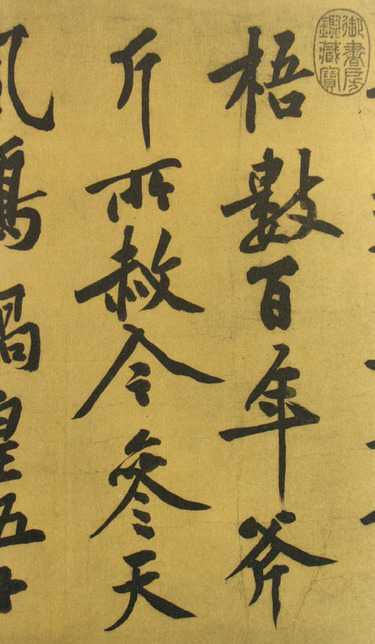 御書房
鑑藏寶
梧數百年斧
斤所赦今參天
風鳴媧皇五十